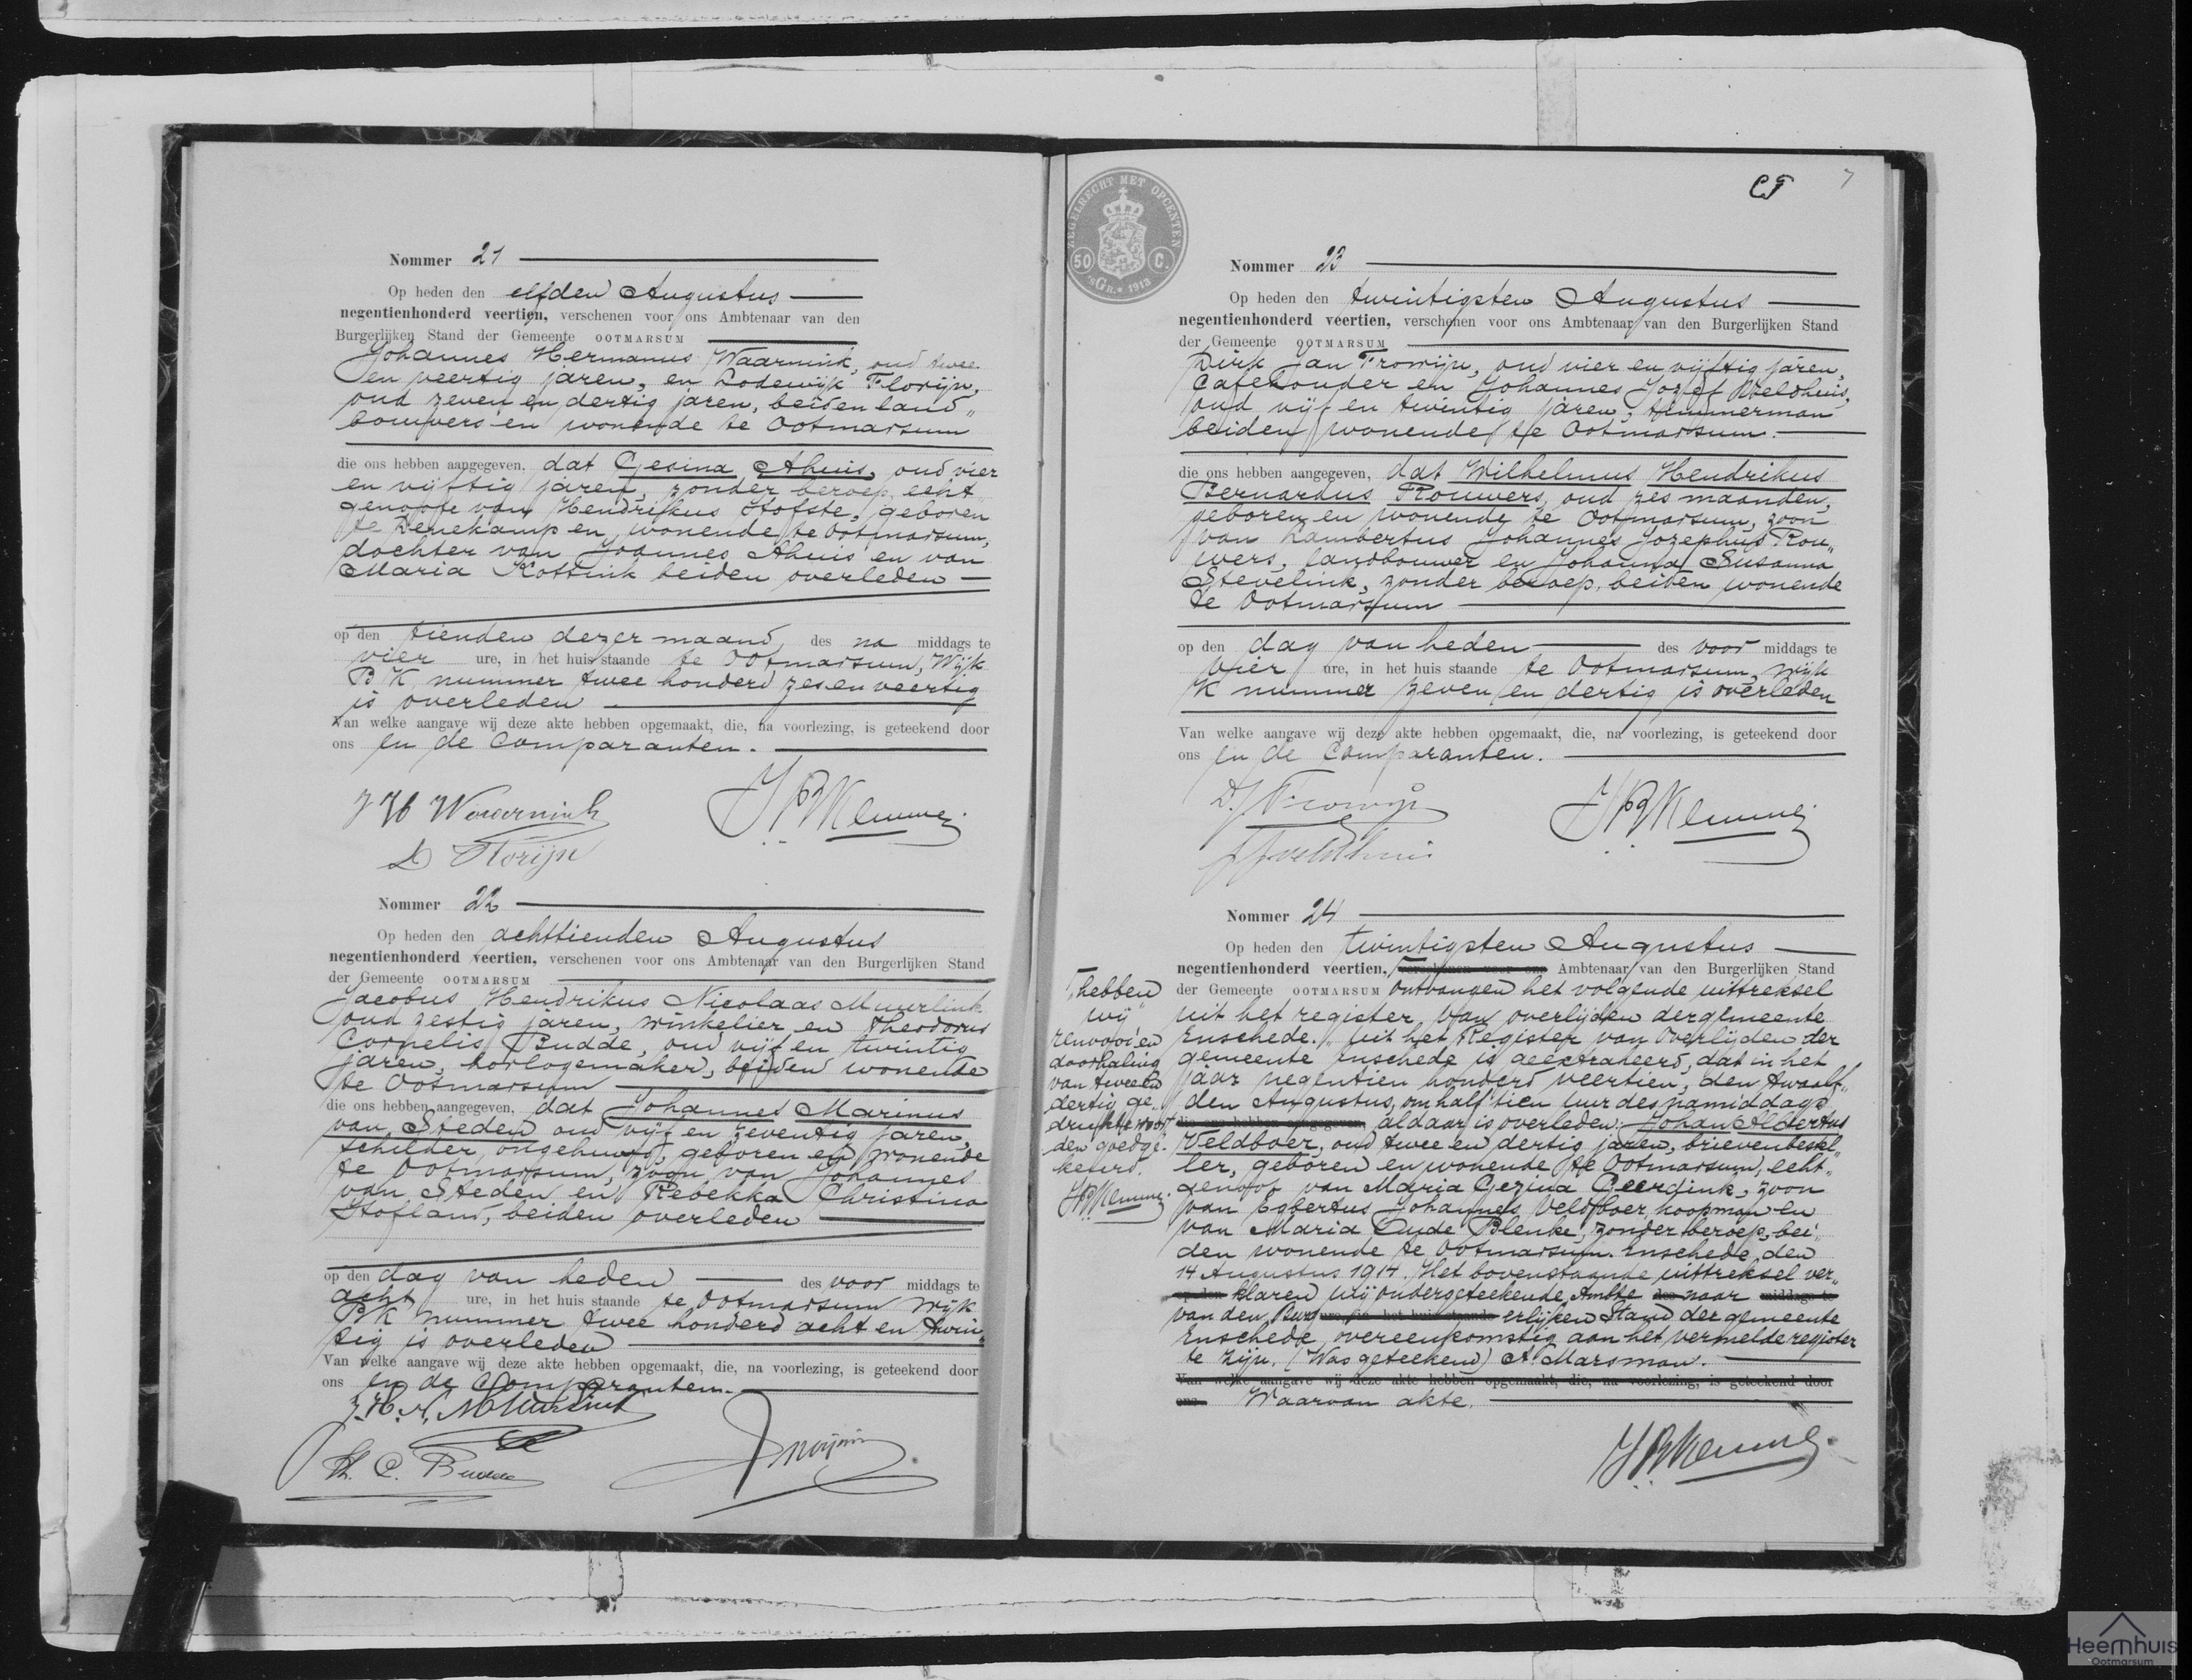 Nommer 21
Op heden den elfden Augustus
negentienhonderd veertien, verschenen voor ons Ambtenaar van den
Burgerlijken Stand der Gemeente OOTMARSUM
Johannes Hermannus Waarnink, oud twee
en veertig jaren, en Lodewijk Florijn,
oud zeven en dertig jaren, beiden land„
bouwers en wonende te Ootmarsum
die ons hebben aangegeven, dat Gesina Ahuis, oud vier
en vijftig jaren, zonder beroep, echt„
genoote van Hendrikus Hofste, geboren
te Denekamp en wonende te Ootmarsum,
dochter van Joannes Ahuis en van
Maria Kottink beiden overleden
op den tienden dezer maand des na middags te
vier ure, in het huis staande te Ootmarsum, Wijk
BK nummer twee honderd zes en veertig
is overleden
Van welke aangave wij deze akte hebben opgemaakt, die, na voorlezing, is geteekend door
ons en de Comparanten.
JH Waarnink
L Florijn
Nommer 22
Op heden den achttienden Augustus
negentienhonderd veertien, verschenen voor ons Ambtenaar van den Burgerlijken Stand
der Gemeente OOTMARSUM
Jacobus Hendrikus Nicolaas Muurlink
oud zestig jaren, winkelier en Theodorus
Cornelis Budde, oud vijf en twintig
jaren, horlogemaker, beiden wonende
te Ootmarsum
die ons hebben aangegeven, dat Johannes Marinus
van Steden oud vijf en zeventig jaren,
schilder, ongehuwd, geboren en wonende
te Ootmarsum, zoon van Johannes
van Steden en Rebekka Christina
Hofland, beiden overleden
op den dag van heden des voor middags te
acht ure, in het huis staande te Ootmarsum wijk
BK nummer twee honderd acht en twin„
tig is overleden
Van welke aangave wij deze akte hebben opgemaakt, die, na voorlezing, is geteekend door
ons en de Comparanten.
J.H.N. Muurlink
Th. C. Budde
ZEGELRECHT MET OPCENTEN
50 C.
'sGR. 1913
7
Nommer 23
Op heden den twintigsten Augustus
negentienhonderd veertien, verschenen voor ons Ambtenaar van den Burgerlijken Stand
der Gemeente OOTMARSUM
Dirk Jan Frowijn, oud vier en vijftig jaren,
Cafehouder en Johannes Jozef Veldhuis,
oud vijf en twintig jaren, timmerman
beiden wonende te Ootmarsum.
die ons hebben aangegeven, dat Wilhelmus Hendrikus
Bernardus Rouwers, oud zes maanden,
geboren en wonende te Ootmarsum, zoon
van Lambertus Johannes Jozephus Rou„
wers, landbouwer en Johanna Susanna
Stevelink, zonder beroep, beiden wonende
te Ootmarsum
op den dag van heden des voor middags te
vier ure, in het huis staande te Ootmarsum, wijk
K nummer zeven en dertig is overleden
Van welke aangave wij deze akte hebben opgemaakt, die, na voorlezing, is geteekend door
ons en de Comparanten.
D.J. Frowijn
JJ Veldhuis
Nommer 24
Op heden den twintigsten Augustus
negentienhonderd veertien, verschenen voor ons Ambtenaar van den Burgerlijken Stand
der Gemeente OOTMARSUM ontvangen het volgende uittreksel
uit het register van overlijden der gemeente
Enschede. „Uit het Register van Overlijden der
gemeente Enschede is geëxtraheerd, dat in het
jaar negentien honderd veertien, den twaalf„
den Augustus, om half tien uur des namiddags
die ons hebben aangegeven, aldaar is overleden: Johan Albertus
Veldboer, oud twee en dertig jaren, brievenbestel„
ler, geboren en wonende te Ootmarsum, echt„
genoot van Maria Gezina Geerdink, zoon
van Egbertus Johannes Veldboer, koopman en
van Maria Oude Blenke, zonder beroep, bei„
den wonende te Ootmarsum. Enschede, den
14 Augustus 1914. Het bovenstaande uittreksel ver„
op den klaren wij ondergeteekende, Ambte des naar middags te
van den Burg ure, in het huis staande erlijken Stand der gemeente
Enschede, overeenkomstig aan het vermelde register
te zijn. (Was geteekend) A. Marsman.
Van welke aangave wij deze akte hebben opgemaakt, die, na voorlezing, is geteekend door
ons Waarvan akte.
hebben
wij
renvooi en
doorhaling
van twee en
dertig ge„
drukte woor
den goedge„
keurd.
Heemhuis
Ootmarsum